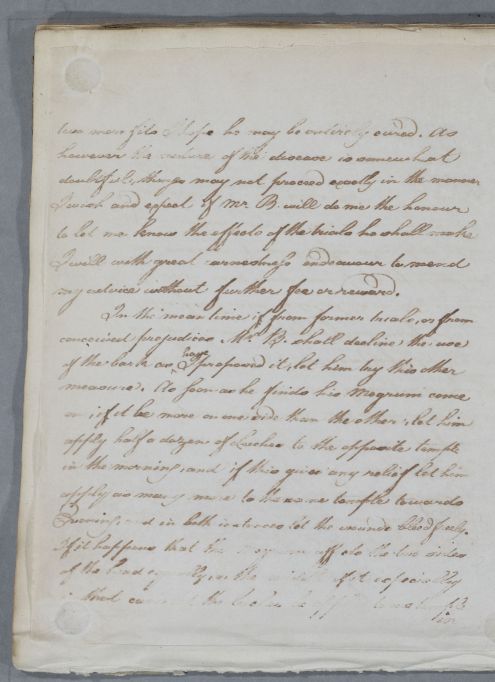 two more fits I hope he may be entirely cured. As
however the nature of this disease is somewhat
doubtful, things may not proceed exactly in the manner
I wish and expect if Mr. B. will do me the honour
to let me know the effects of the trials he shall make
I will with great earnestness endeavour to mend
my advice without further fee or reward.
In the mean time if from former trials, or from
conceived prejudice Mr. B. shall decline the use
of the bark as I have proposed it, let him try this other
measure. As soon as he finds his Megrim come
on if it be more on one side than the other, let him
apply half a dozen of Leeches to the opposite temple
in the morning, and if this gives any relief let him
apply as many more to the same temple towards
Evening, and in both instances let the wounds bleed freely.
If it happens that the megrim affects the two sides
of the head equally, or the middle of it especially
in that case let the leeches be